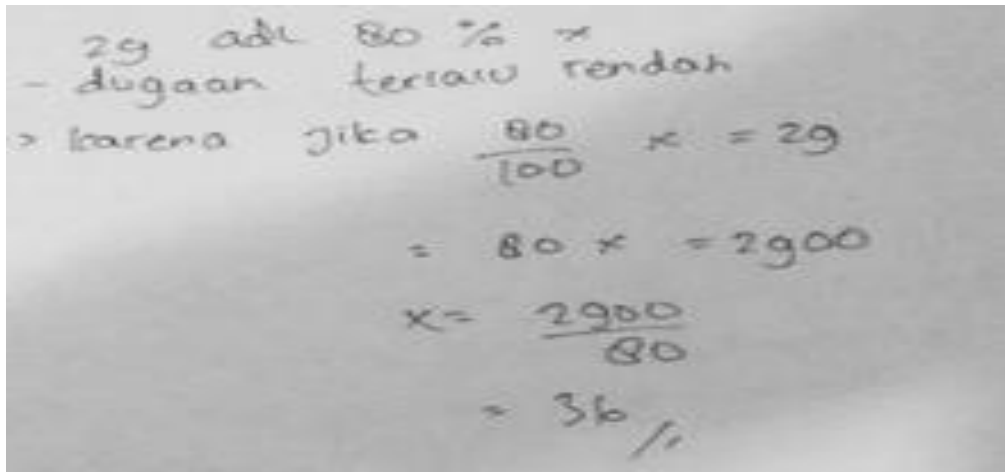 29 adl 80 % x
- dugaan terlalu rendah
> karena jika 80/100 x = 29
= 80 x = 2900
x = 2900/80
= 36 //